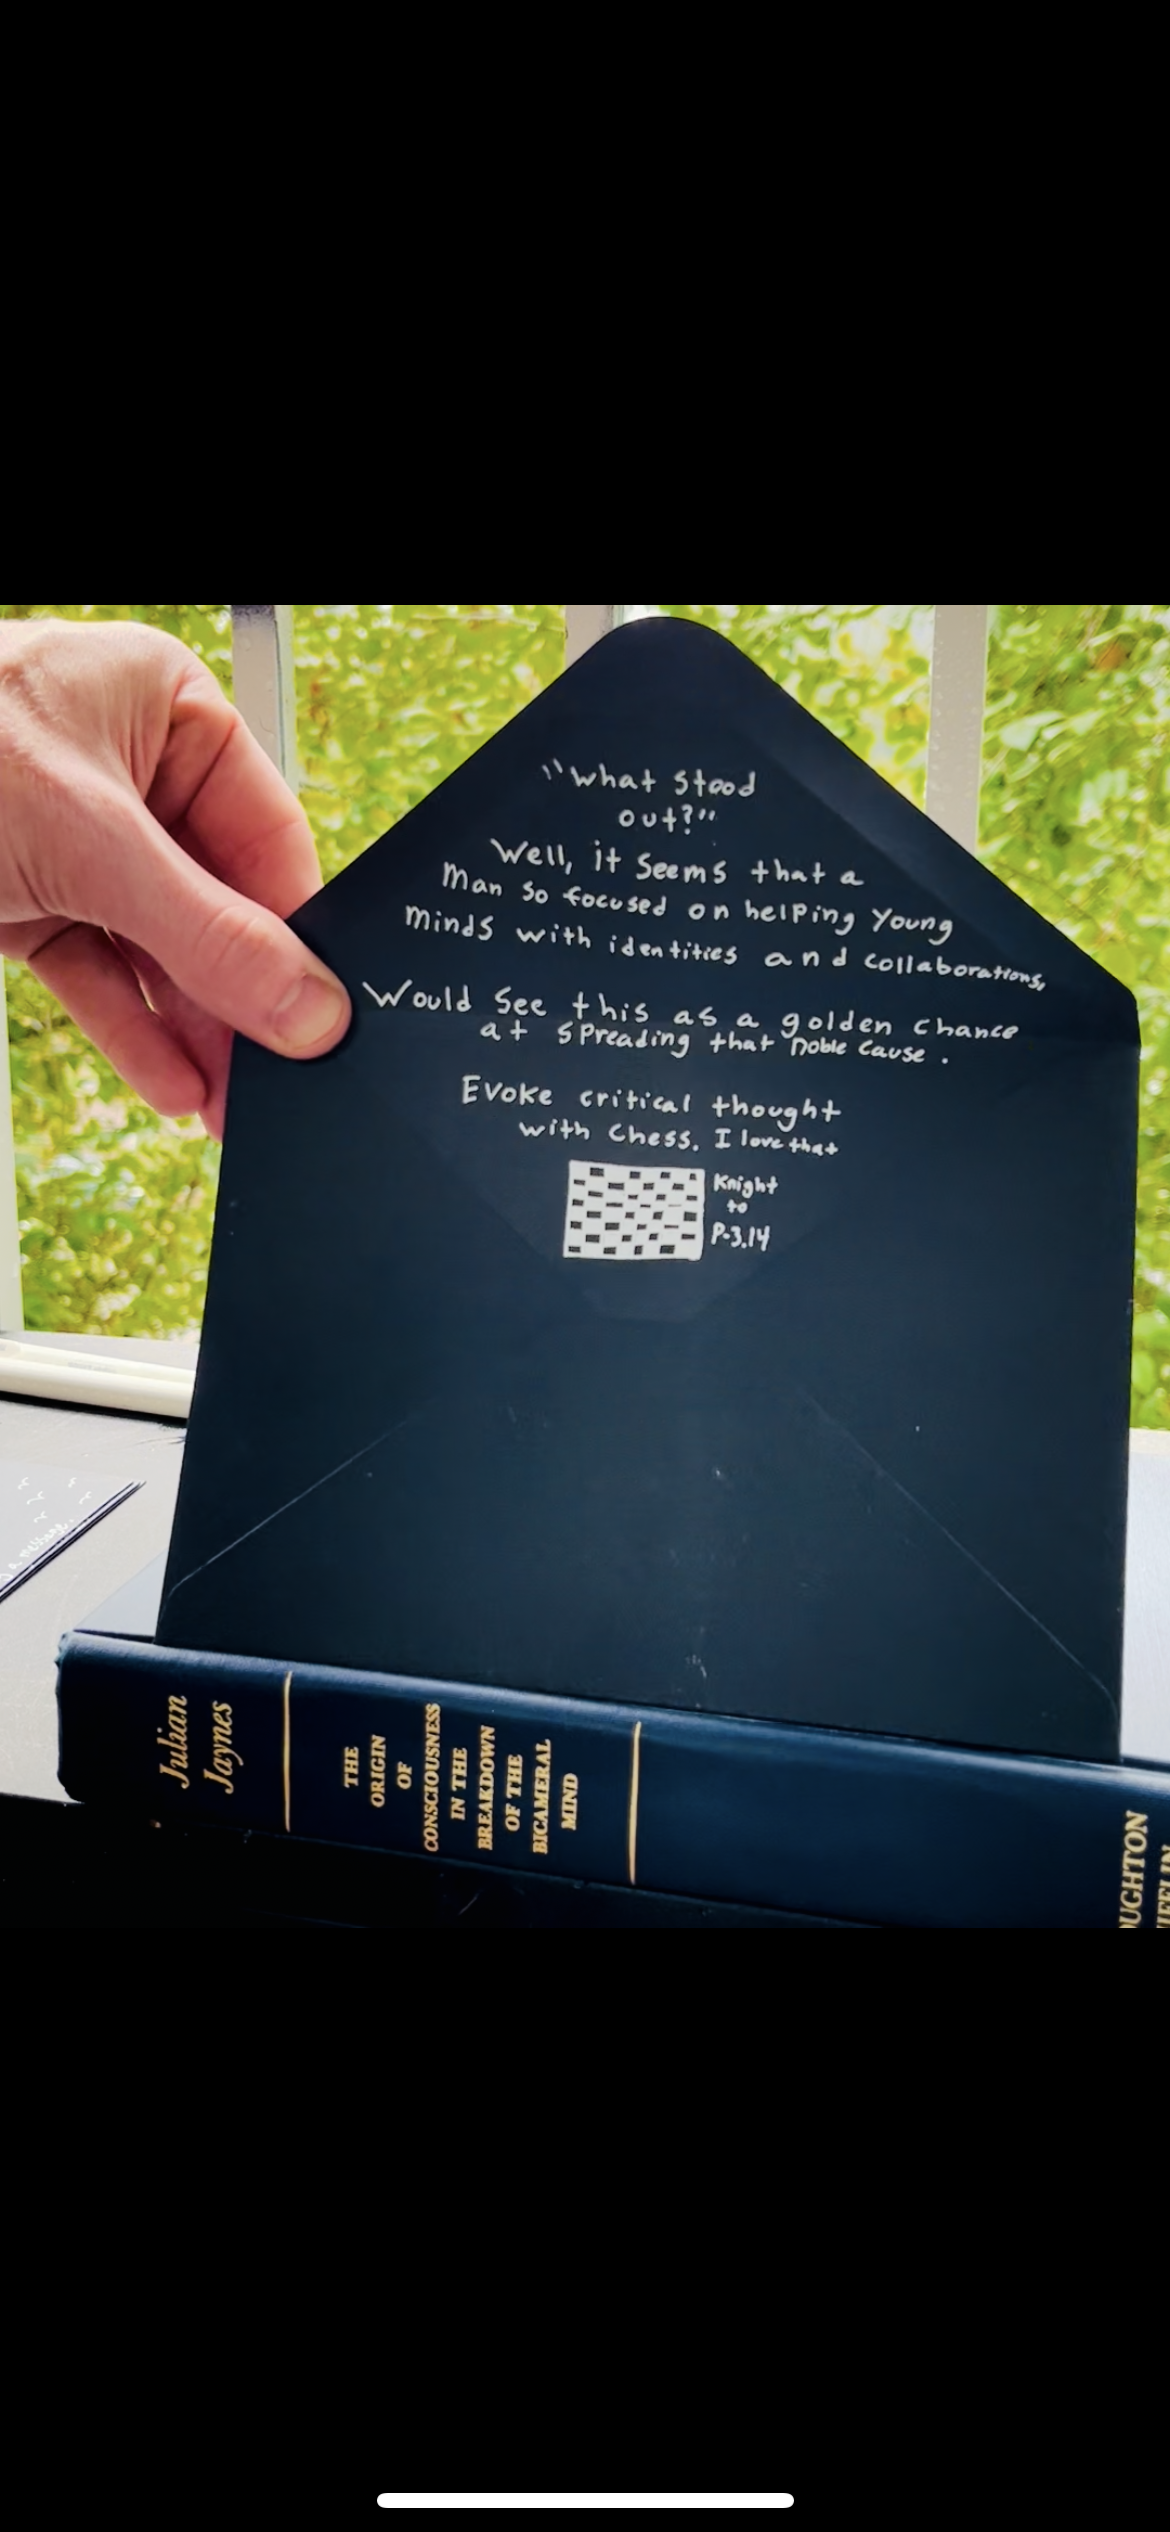 "What stood
out?"
Well, it seems that a
Man so focused on helping Young
Minds with identities and collaborations,
Would See this as a golden chance
at spreading that noble cause.
Evoke critical thought
with Chess. I love that
Knight
to
P-3.14
a message.
Julian
Jaynes
THE
ORIGIN
OF
CONSCIOUSNESS
IN THE
BREAKDOWN
OF THE
BICAMERAL
MIND
OUGHTON
IFFLIN